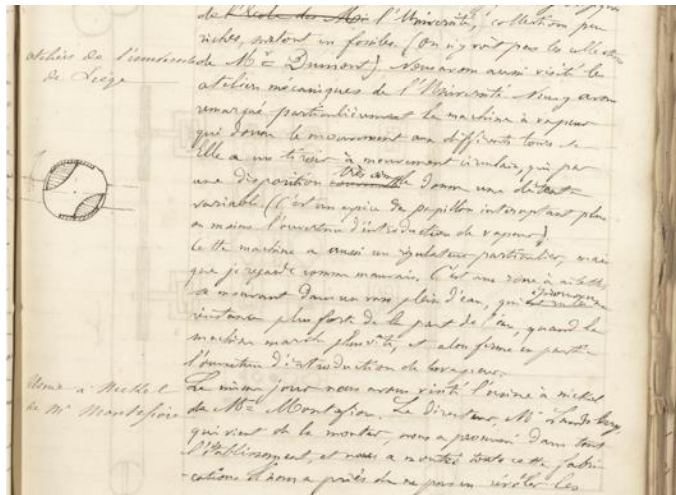 de l'École des Mines l'Université, collections peu
riches, surtout en fossiles. (On n'y voit pas les collections
ateliers de l'université
de Liège
de Mr Dumont). Nous avons aussi visité les
ateliers mécaniques de l'Université. Nous y avons
remarqué particulièrement la machine à vapeur
qui donne le mouvement aux différents tours etc
Elle a un tiroir à mouvement circulaire, qui par
une disposition très simple donne une détente
variable. (C'est une espèce de papillon interceptant plus
ou moins l'ouverture d'introduction de vapeur)
Cette machine a aussi un régulateur particulier, mais
que je regarde comme mauvais. C'est une roue à ailettes
se mouvant dans un vase plein d'eau, qui éprouve une
résistance plus forte de la part de l'eau, quand la
machine marche plus vite, et alors ferme en partie
l'ouverture d'introduction de la vapeur.
Usine à Nickel
de Mr Montefiore
Le même jour nous avons visité l'usine à nickel
de Mr Montefiore. Le directeur, Mr
qui vient de la monter, nous a promené dans tout
l'établissement, et nous a montré toute cette fabri-
cation. Il nous a priés de ne pas en révéler les